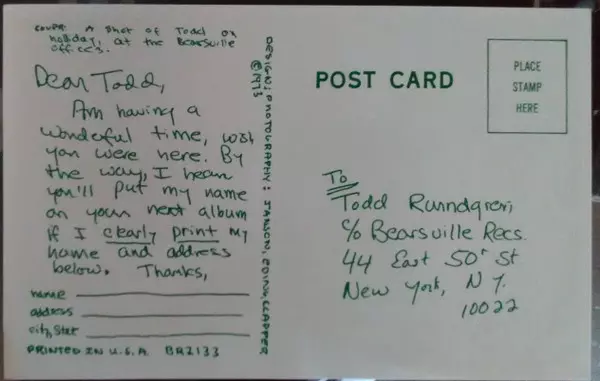 COVER: A Shot of Todd on
holiday, at the Bearsville
offices.
Dear Todd,
Am having a
wonderful time, wish
you were here. By
the way, I hear
you'll put my name
on your next album
if I clearly print my
name and address
below. Thanks,
name
address
city, state
PRINTED IN U.S.A. BR2133
DESIGN; PHOTOGRAPHY:
©1973
POST CARD
PLACE
STAMP
HERE
To
Todd Rundgren,
c/o Bearsville Recs.
44 East 50' St
New York, N.Y.
10022